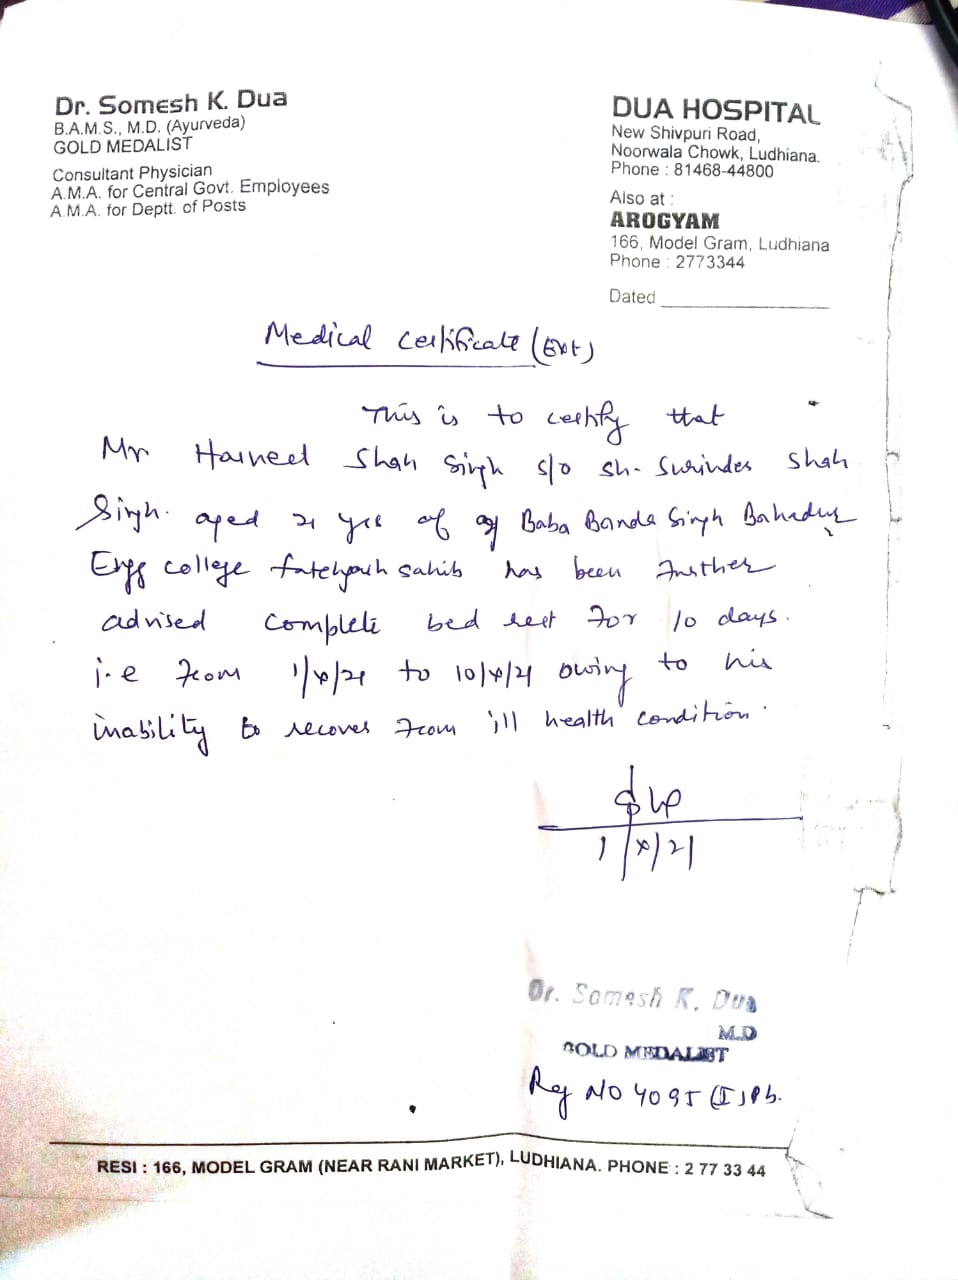 Dr. Somesh K. Dua
B.A.M.S., M.D. (Ayurveda)
GOLD MEDALIST
Consultant Physician
A.M.A. for Central Govt. Employees
A.M.A. for Deptt. of Posts
DUA HOSPITAL
New Shivpuri Road,
Noorwala Chowk, Ludhiana.
Phone : 81468-44800
Also at :
AROGYAM
166, Model Gram, Ludhiana
Phone : 2773344
Dated
Medical Certificate (Ext)
This is to certify that
Mr Harneet Shah Singh s/o Sh. Surinder Shah
Singh. aged 21 yrs of Baba Banda Singh Bahadur
Engg college fatehgarh sahib has been further
advised complete bed rest for 10 days.
i.e from 1/4/21 to 10/4/21 owing to his
inability to recover from ill health condition.
Dr. Somesh K. Dua
M.D
GOLD MEDALIST
Reg NO 4095 (I) Pb.
RESI : 166, MODEL GRAM (NEAR RANI MARKET), LUDHIANA. PHONE : 2 77 33 44